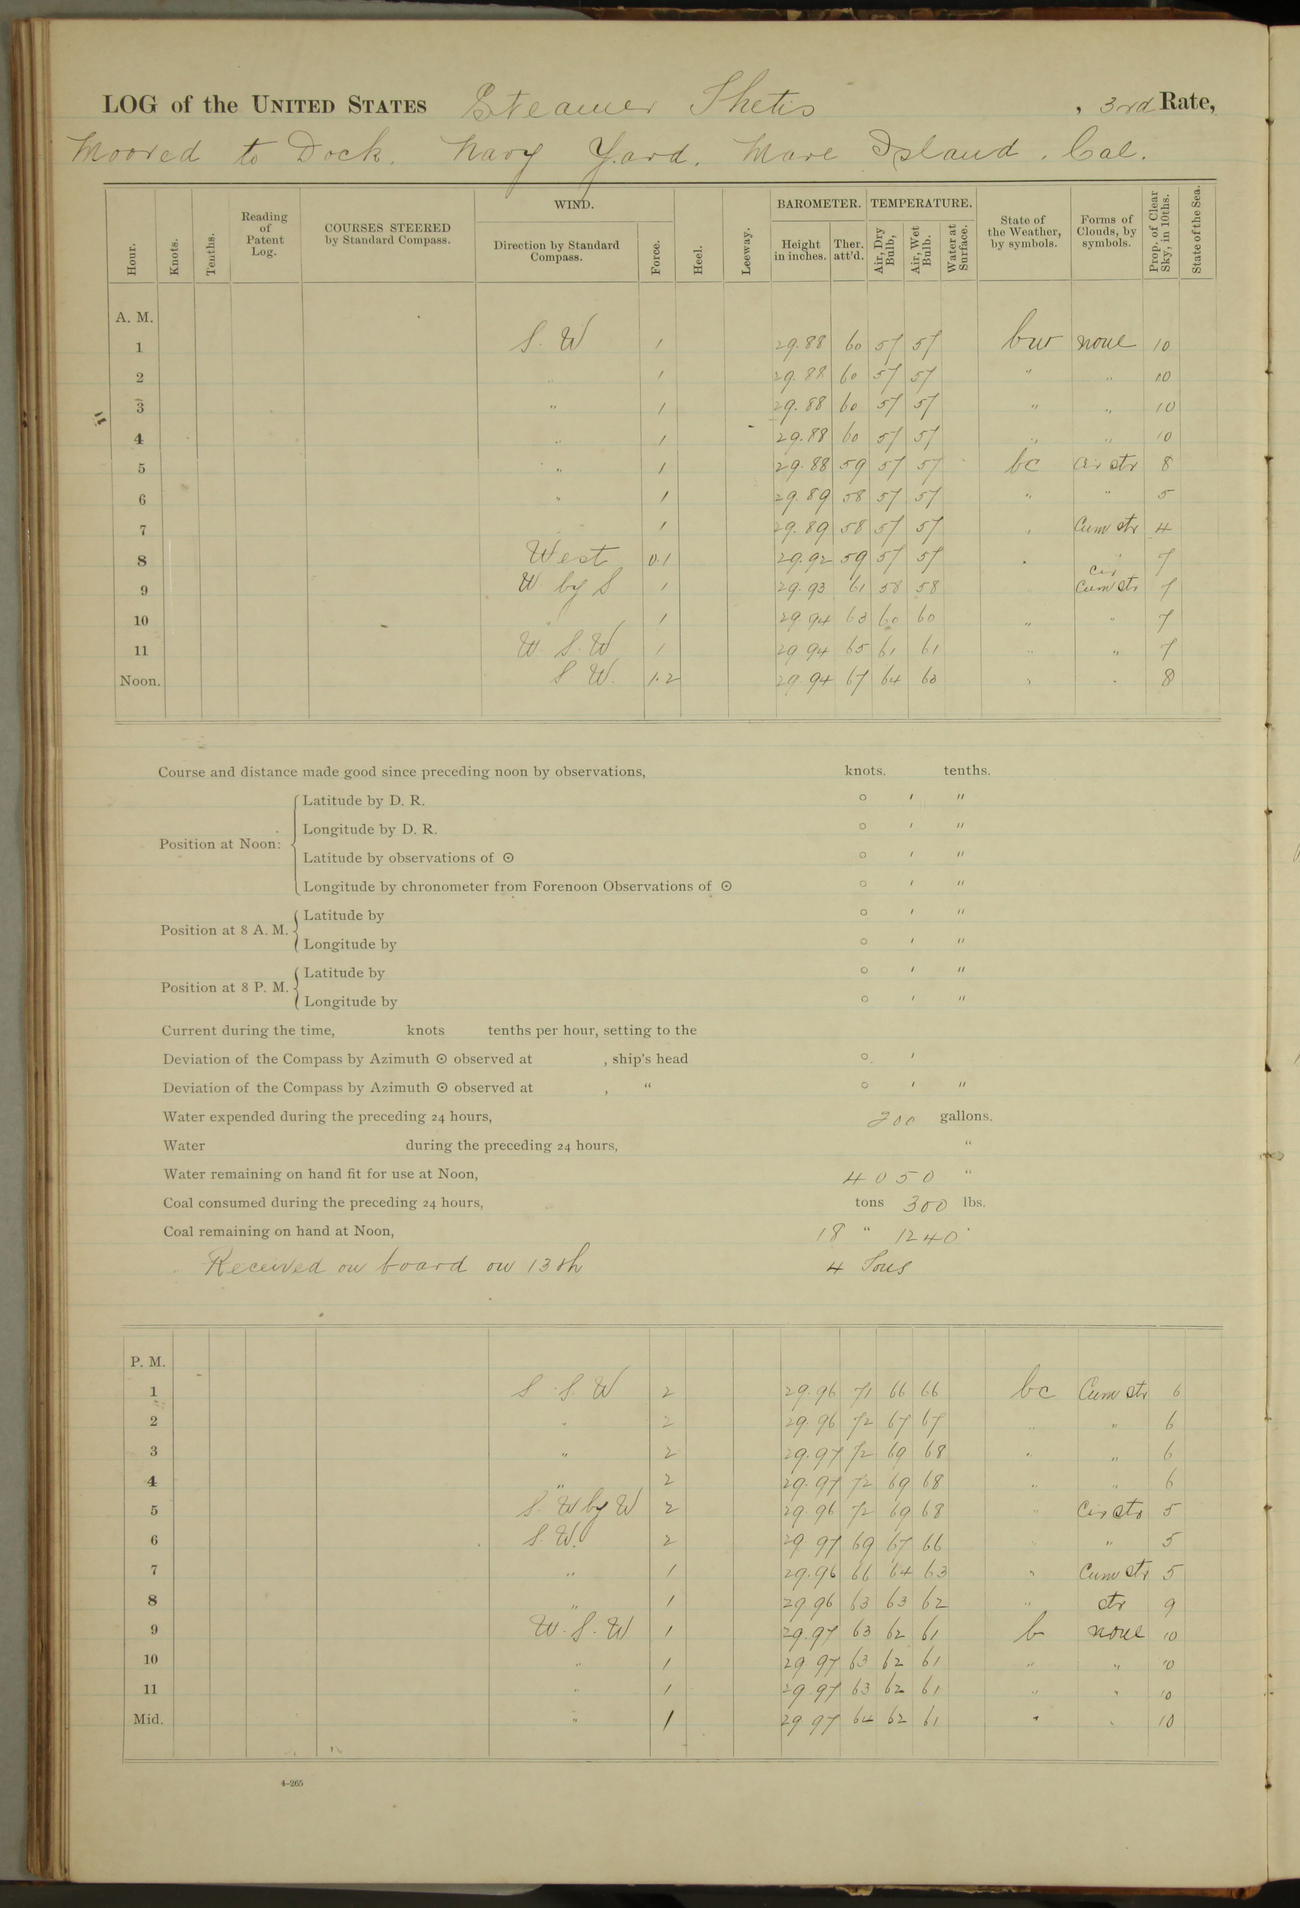 LOG of the UNITED STATES Steamer Thetis , 3rd Rate,
Moored to Dock. Navy Yard. Mare Island. Cal.
Hour. Knots. Tenths. Reading of Patent Log. COURSES STEERED by Standard Compass. WIND. Direction by Standard Compass. Force. Heel. Leeway. BAROMETER. Height in inches. Ther. att'd. TEMPERATURE. Air, Dry Bulb, Air, Wet Bulb. Water at Surface. State of the Weather, by symbols. Forms of Clouds, by symbols. Prop. of Clear Sky, in 10ths. State of the Sea.
A. M.
1 S. W 1 29.88 60 57 57 bw none 10
2 " 1 29.88 60 57 57 " " 10
3 " 1 29.88 60 57 57 " " 10
4 " 1 29.88 60 57 57 " " 10
5 " 1 29.88 59 57 57 bc Cir str 8
6 " 1 29.89 58 57 57 " " 5
7 1 29.89 58 57 57 " Cum str 4
8 West 0.1 29.92 59 57 57 " " 7
9 W by S 1 29.93 61 58 58 Cir Cum str 7
10 " 1 29.94 63 60 60 " " 7
11 W. S. W 1 29.94 65 61 61 " " 7
Noon. S W. 1.2 29.94 67 64 63 " " 8
Course and distance made good since preceding noon by observations, knots. tenths.
Position at Noon:
Latitude by D. R. ° ′ ″
Longitude by D. R. ° ′ ″
Latitude by observations of ☉ ° ′ ″
Longitude by chronometer from Forenoon Observations of ☉ ° ′ ″
Position at 8 A. M.
Latitude by ° ′ ″
Longitude by ° ′ ″
Position at 8 P. M.
Latitude by ° ′ ″
Longitude by ° ′ ″
Current during the time, knots tenths per hour, setting to the
Deviation of the Compass by Azimuth ☉ observed at , ship's head ° ′
Deviation of the Compass by Azimuth ☉ observed at , " ° ′ ″
Water expended during the preceding 24 hours, 200 gallons.
Water during the preceding 24 hours, "
Water remaining on hand fit for use at Noon, 4050 "
Coal consumed during the preceding 24 hours, tons 300 lbs.
Coal remaining on hand at Noon, 18 " 1240 "
Received on board on 13th 4 Tons
P. M.
1 S. S. W 2 29.96 71 66 66 bc Cum str 6
2 " 2 29.96 72 67 67 " " 6
3 " 2 29.97 72 69 68 " " 6
4 " 2 29.97 72 69 68 " " 6
5 S. W by W 2 29.96 72 69 68 " Cir str 5
6 S. W. 2 29.97 69 67 66 " " 5
7 " 1 29.96 66 64 63 " Cum str 5
8 " 1 29.96 63 63 62 " str 9
9 W. S. W 1 29.97 63 62 61 b none 10
10 " 1 29.97 63 62 61 " " 10
11 " 1 29.97 63 62 61 " " 10
Mid. " 1 29.97 64 62 61 " " 10
4–265